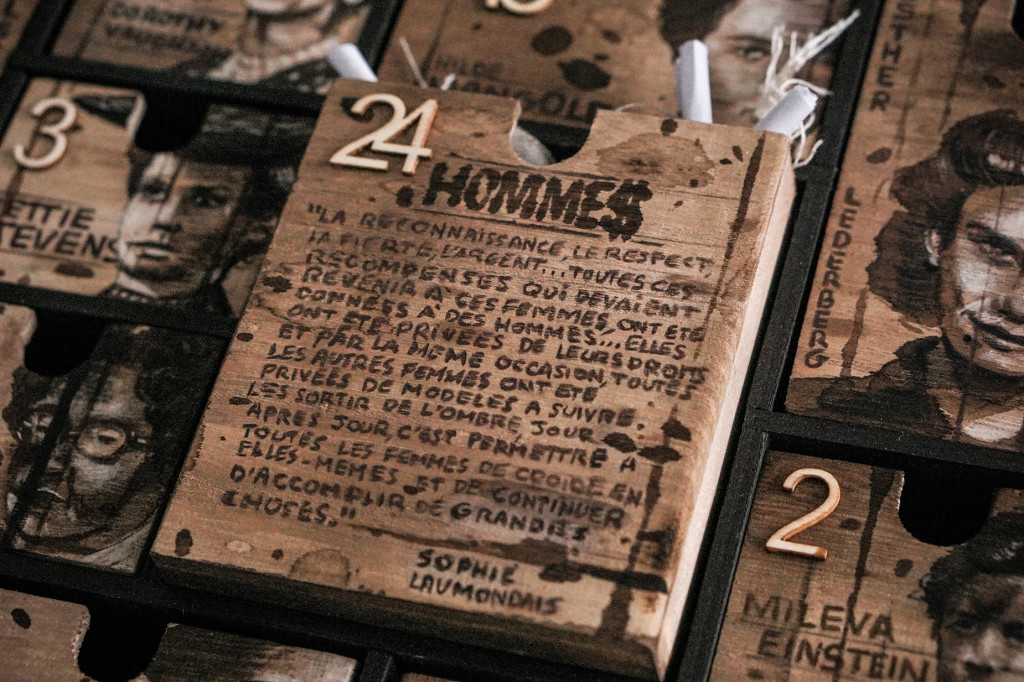 DOROTHY
VAUGHAN
HILDE
MANGOLD
ESTHER
LEDERBERG
3
ETTIE
TEVENS
24
HOMMES
"LA RECONNAISSANCE, LE RESPECT,
LA FIERTE, L'ARGENT... TOUTES CES
RECOMPENSES QUI DEVAIENT
REVENIR A CES FEMMES, ONT ETE
DONNEES A DES HOMMES... ELLES
ONT ETE PRIVEES DE LEURS DROITS
ET PAR LA MEME OCCASION, TOUTES
LES AUTRES FEMMES ONT ETE
PRIVEES DE MODELES A SUIVRE.
LES SORTIR DE L'OMBRE, JOUR
APRES JOUR, C'EST PERMETTRE A
TOUTES LES FEMMES DE CROIRE EN
ELLES-MEMES ET DE CONTINUER
D'ACCOMPLIR DE GRANDES
CHOSES."
SOPHIE
LAUMONDAIS
2
MILEVA
EINSTEIN